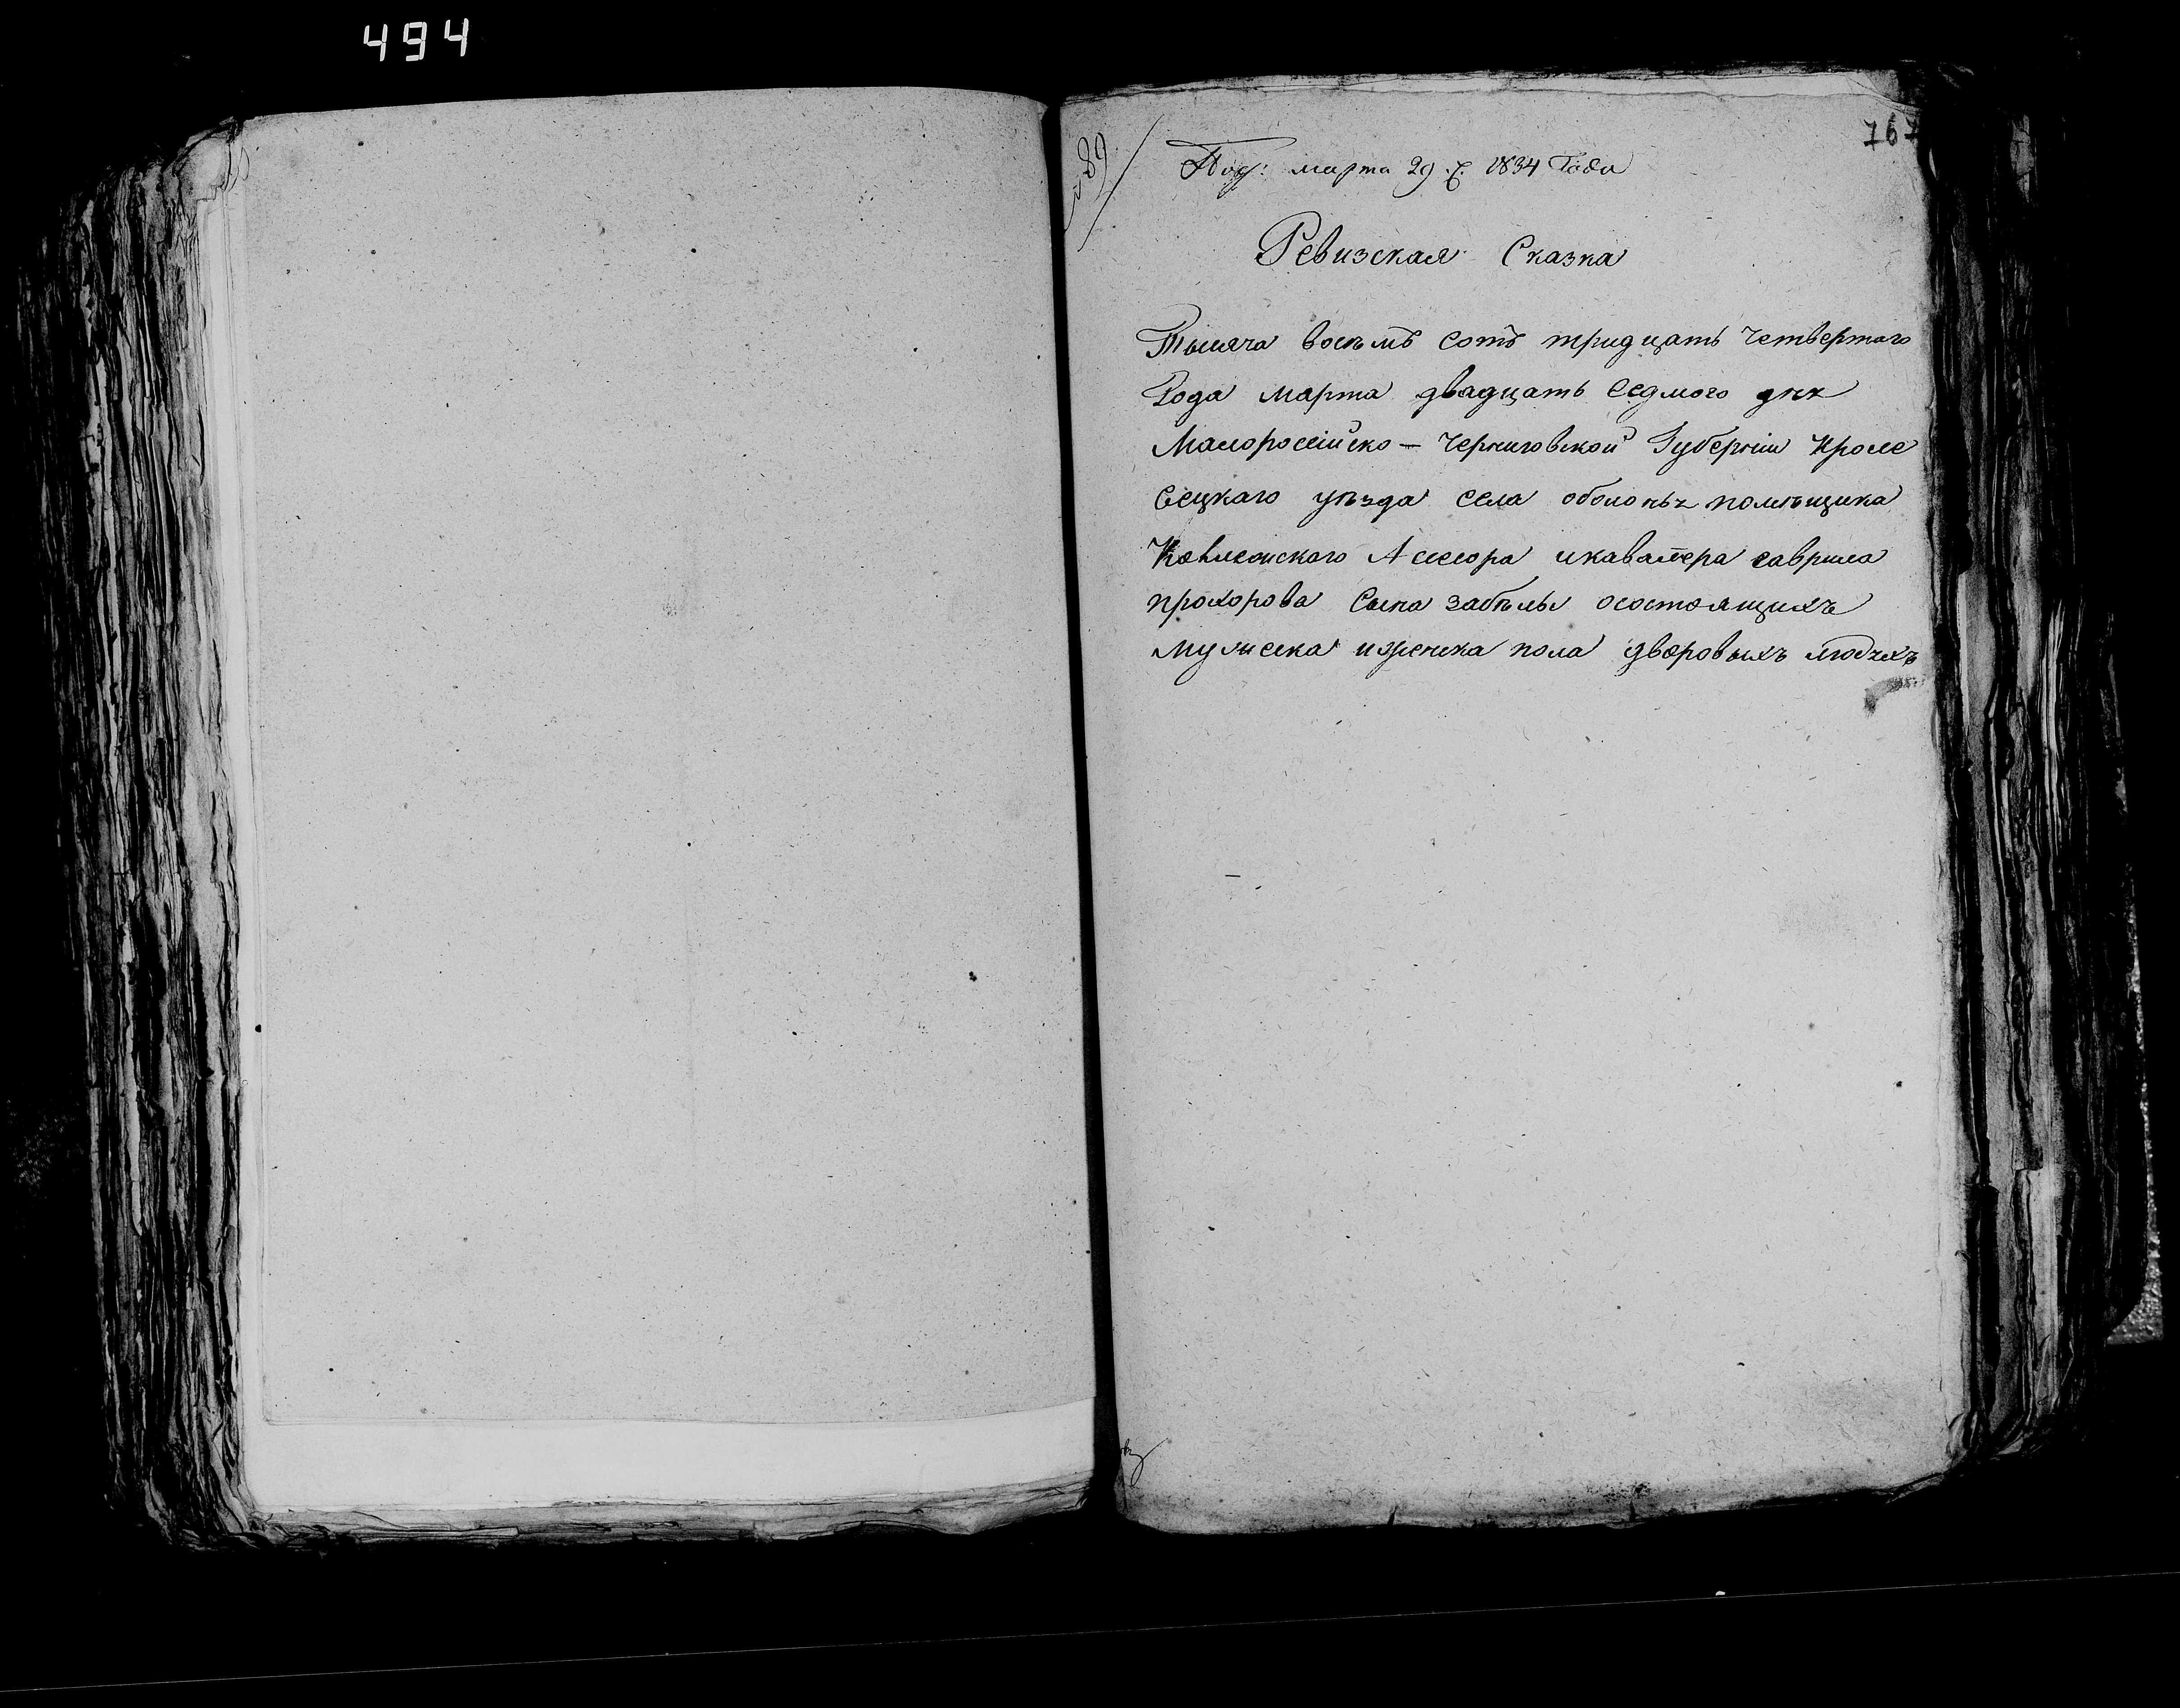 494
767
89
Пол: марта 29 д. 1834 Года
Ревизская Сказка
Тысяча восемь сотъ тридцать четвертаго
Года марта двадцать седмого дня
Малороссійско — Черниговской Губерніи Кроле
вецкаго уѣзда села оболонья помѣщика
Колежскаго Асесора икавалера гаврила
прохорова сына забѣлы осостоящихъ
мужеска иженска пола дворовыхъ людяхъ